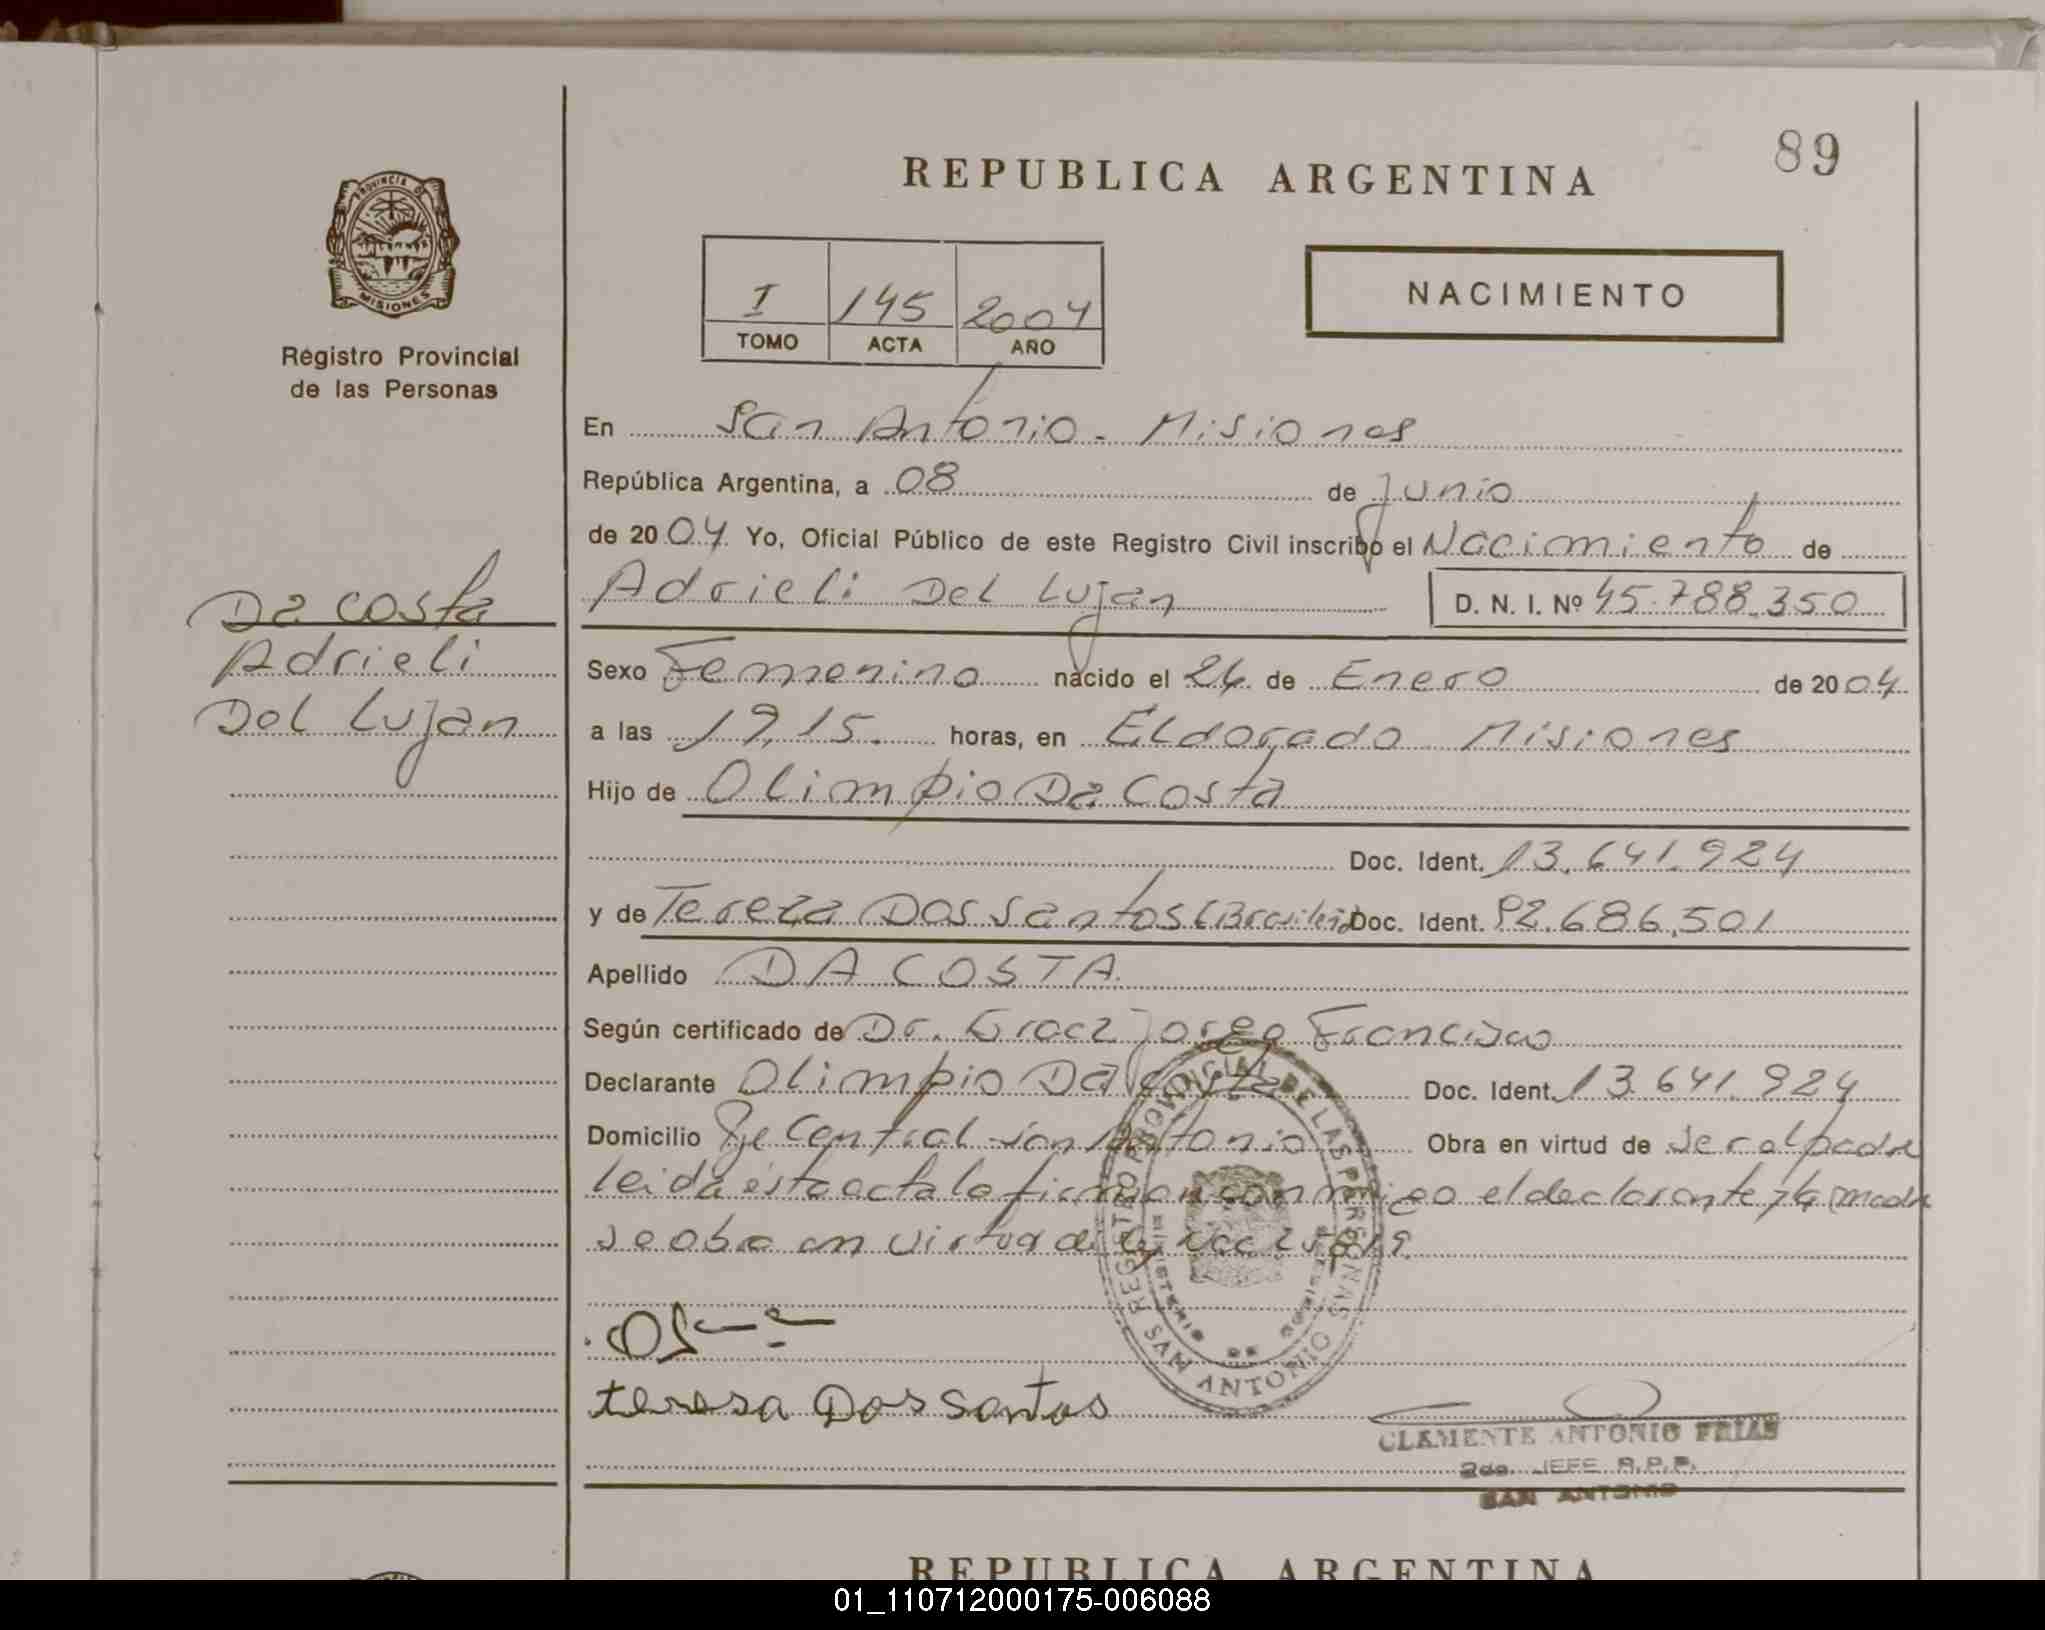 89
REPUBLICA ARGENTINA
PROVINCIA DE MISIONES
Registro Provincial
de las Personas
I 145 2004
TOMO ACTA AÑO
NACIMIENTO
En San Antonio - Misiones
República Argentina, a 08 de Junio
de 2004 Yo, Oficial Público de este Registro Civil inscribo el Nacimiento de
Adrieli Del Lujan D. N. I. Nº 45.788.350
Da Costa
Adrieli
Del Lujan
Sexo Femenino nacido el 26 de Enero de 2004
a las 19,15. horas, en Eldorado Misiones
Hijo de Olimpio Da Costa
Doc. Ident. 13.641.924
y de Tereza Dos Santos (Brasileña) Doc. Ident. 92.686.501
Apellido DA COSTA
Según certificado de Dr. Jorge Francisco
Declarante Olimpio Da Costa Doc. Ident. 13.641.924
Domicilio Pje Central San Antonio Obra en virtud de ser al padre
leida ésta acta la firman conmigo el declarante y la madre
se obra en virtud de
REGISTRO PROVINCIAL DE LAS PERSONAS
MINISTERIO DE GOBIERNO
SAN ANTONIO
teresa Dos Santos
CLEMENTE ANTONIO FRIAS
2do. JEFE R.P.P.
SAN ANTONIO
REPUBLICA ARGENTINA
01_110712000175-006088